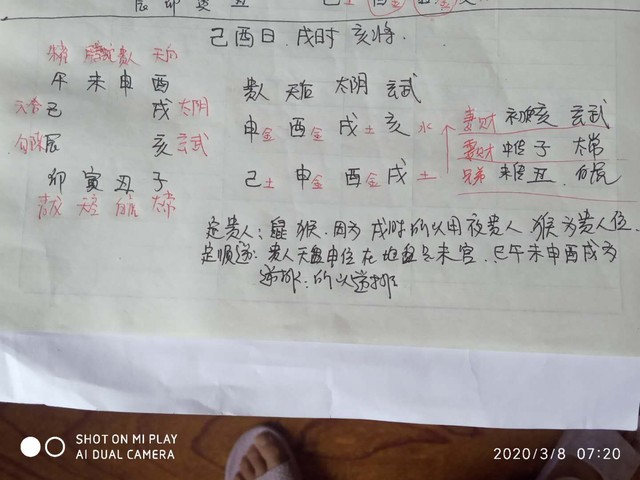 辰 卯 寅 丑
己土 酉金
己酉日.戌时 亥将.
朱雀 腾蛇 贵人 天后
午 未 申 酉
贵人 天后 太阴 玄武
六合 巳 戌 太阴
申金 酉金 戌土 亥水
妻财 初传亥 玄武
勾陈 辰 亥 玄武
妻财 中传子 太常
卯 寅 丑 子
己土 申金 酉金 戌土
兄弟 末传丑 白虎
青龙 天空 白虎 太常
定贵人:鼠猴.因为戌时所以用夜贵人 猴为贵人位.
定顺逆:贵人天盘申位在地盘是未宫.巳午未申酉戌为
逆排.所以逆排
SHOT ON MI PLAY
AI DUAL CAMERA
2020/3/8 07:20